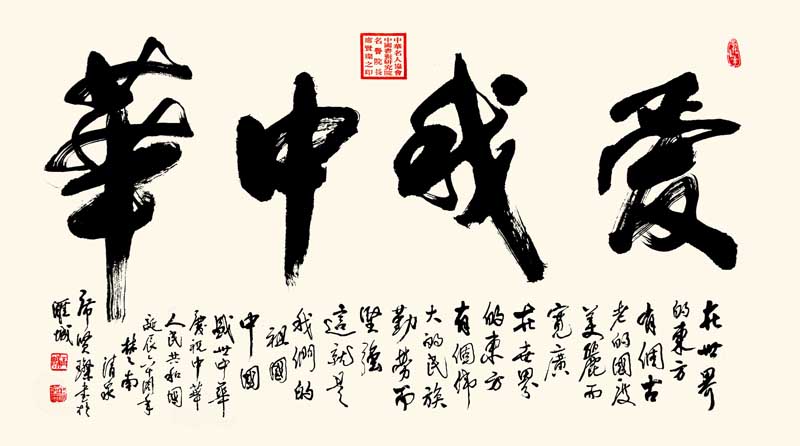 愛我中華
中華名人協會
中國書畫研究院
名譽院長
席賢璨之印
在世界
的東方
有個古
老的國度
美麗而
寬廣
在世界
的東方
有個偉
大的民族
勤勞而
堅強
這就是
我們的
祖國
中國
盛世中華
慶祝中華
人民共和國
誕辰六十周年
席賢璨書於
睢城